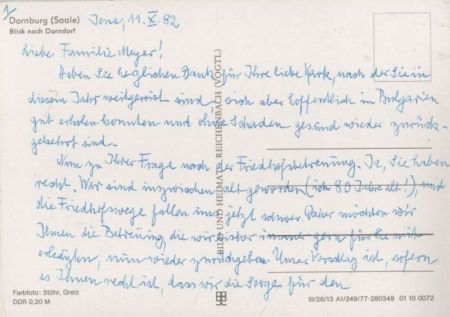 1
Dornburg (Saale)
Blick nach Dorndorf
Jena, 11. X. 82
Liebe Familie Meyer!
Haben Sie herzlichen Dank für Ihre liebe Karte, nach der Sie in
diesem Jahr weitgereist sind, sich aber hoffentlich in Bulgarien
gut erholen konnten und ohne Schaden gesund wieder zurück-
gekehrt sind.
Nun zu Ihrer Frage nach der Friedhofsbetreuung. Ja, Sie haben
recht. Wir sind inzwischen alt geworden (ich 80 Jahre alt!), und
die Friedhofswege fallen uns jetzt schwer. Daher möchten wir
Ihnen die Betreuung, die wir bisher immer gern für Sie mit
erledigten, nun wieder zurückgeben. Unser Vorschlag ist, sofern
es Ihnen recht ist, dass wir die Sorge für den
BILD UND HEIMAT REICHENBACH (VOGTL)
Farbfoto: Stöhr, Greiz
DDR 0,20 M
III/26/13 A1/249/77-280349 01 10 0072